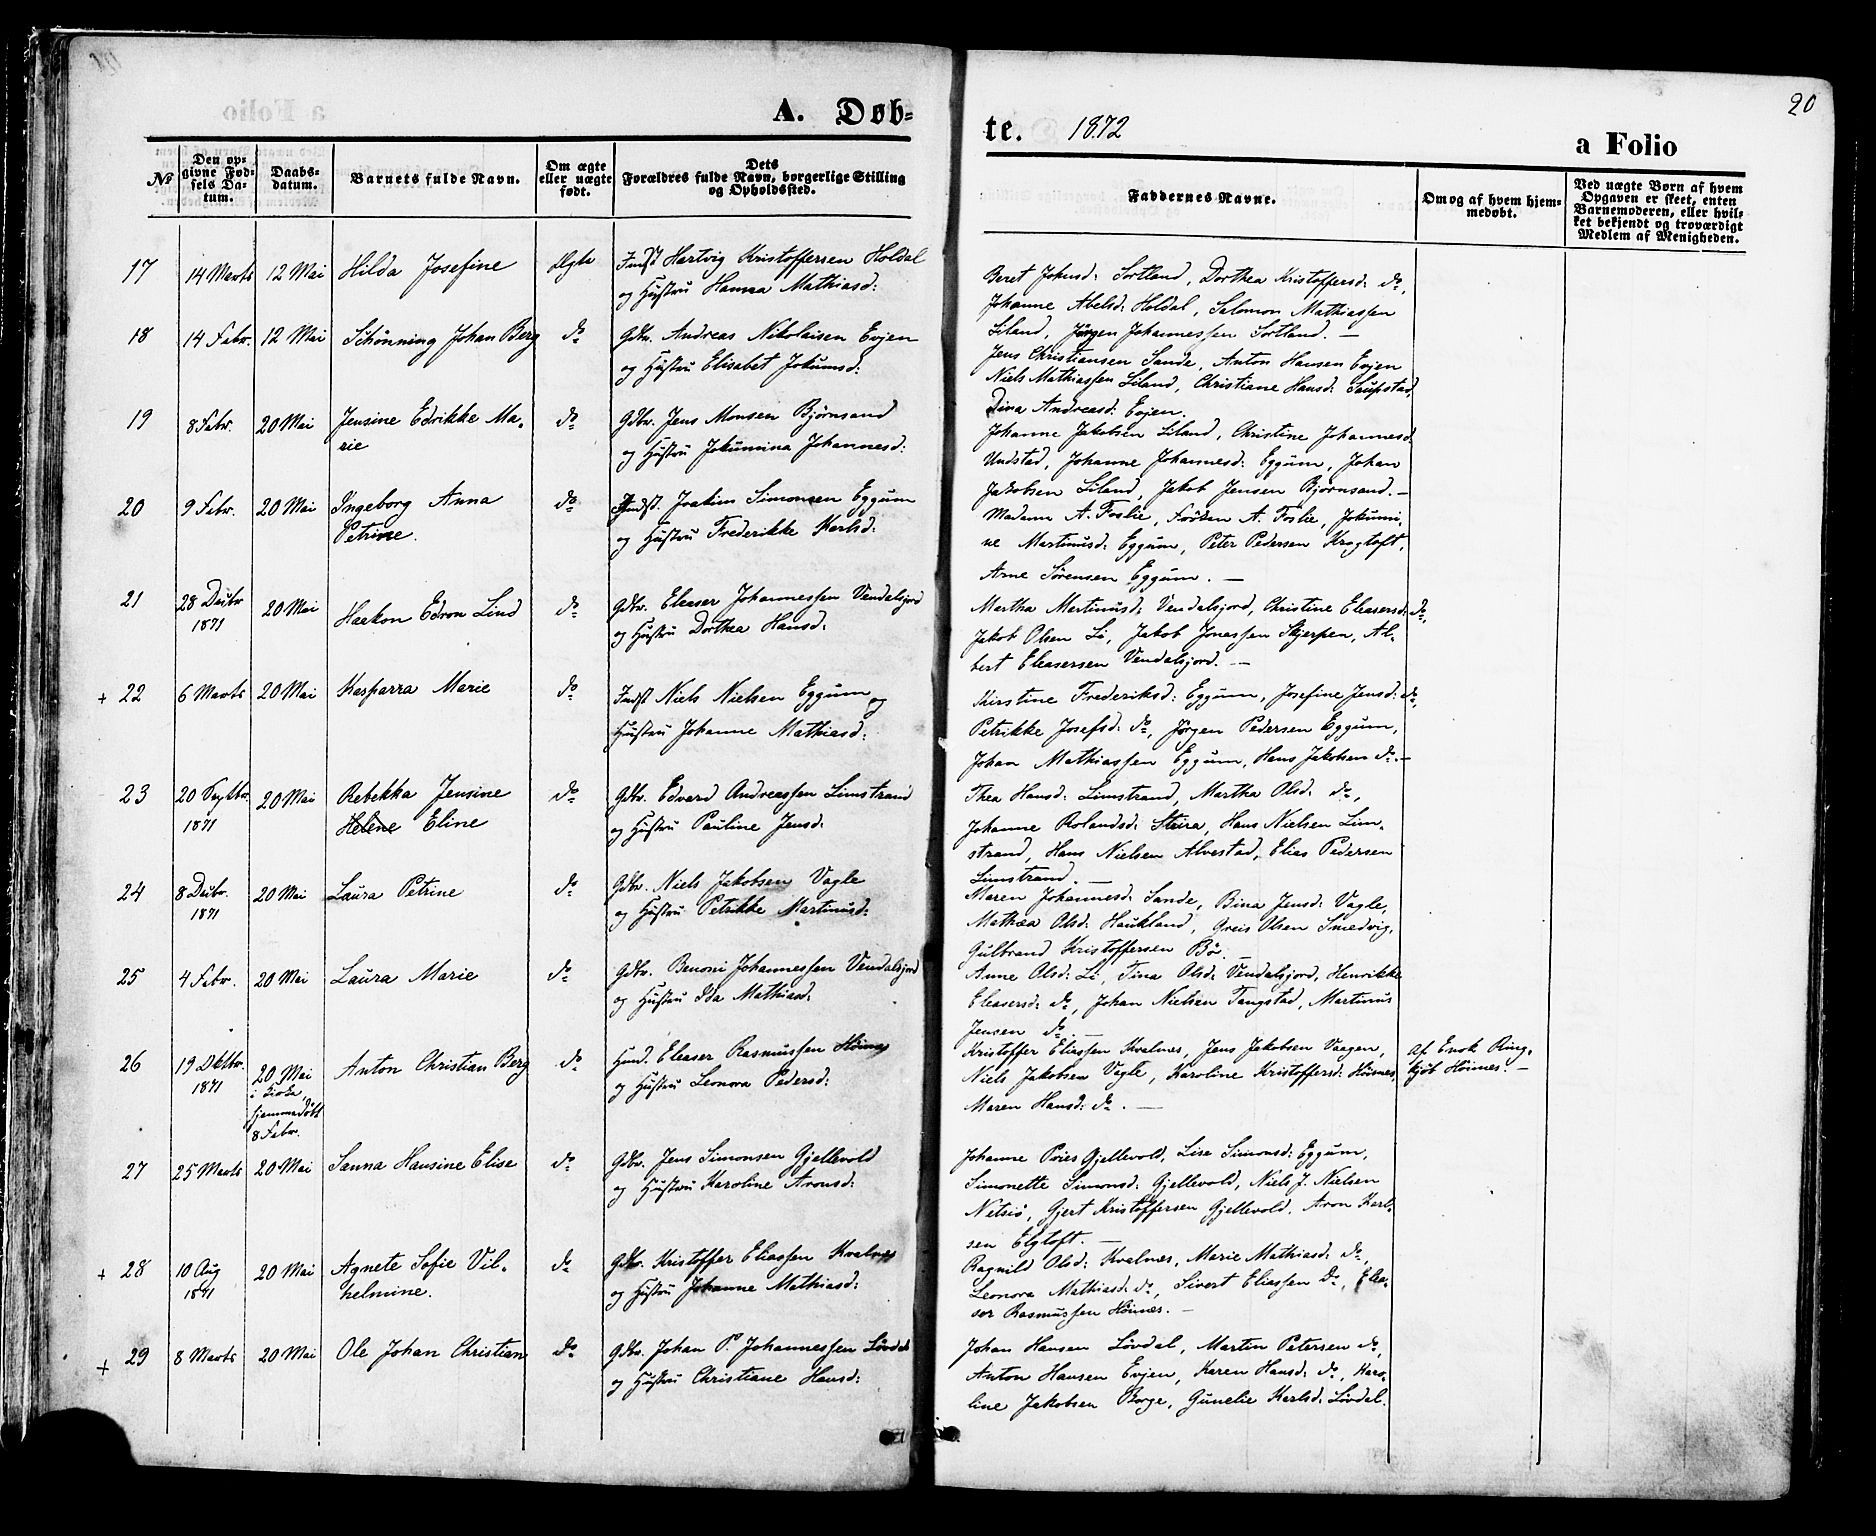 20
A. Døb-
te. 1872
a Folio
No
Den op-
givne Fød-
sels Da-
tum.
Daabs-
datum.
Barnets fulde Navn.
Om ægte
eller uægte
født.
Dets
Forældres fulde Navn, borgerlige Stilling
og Opholdssted.
Faddernes Navne.
Om og af hvem hjem-
medøbt.
Ved uægte Børn af hvem
Opgaven er skeet, enten
Barnemoderen, eller hvil-
ket bekjendt og troværdigt
Medlem af Menigheden.
17 14 Marts 12 Mai Hilda Josefine Ægte Indst Hartvig Kristoffersen Holdal
og Hustru Hanna Mathiasd:
Beret Johnsd: Sortland, Dorthea Kristoffersd: do,
Johanne Abelsd: Holdal, Salomon Mathiassen
Liland, Jørgen Johannessen Sortland. —
18 14 Febr. 12 Mai Schønning Johan Berg do Gdbr. Andreas Nikolaisen Evjen
og Hustru Elisabet Jokumsd:
Jens Christiansen Sande, Anton Hansen Evjen
Niels Mathiassen Liland, Christiane Hansd: Saupstad,
Dina Andreasd: Evjen.
19 8 Febr. 20 Mai Jensine Edrikke Ma-
rie do Gdbr. Jens Monsen Bjørnsand
og Hustru Jokumina Johannesd:
Johanne Jakobsen Liland, Christine Johannesd:
Undstad, Johanne Johannesd: Eggum, Johan
Jakobsen Liland, Jakob Jensen Bjørnsand. —
20 9 Febr. 20 Mai Ingeborg Anna
Petrine. do Indst. Joakim Simonsen Eggum
og Hustru Frederikke Karlsd:
Madame A. Foslie, A. Foslie, Jokumi-
ne Martinusd: Eggum, Peter Pedersen Krogtoft,
Arne Sørensen Eggum. —
21 28 Decbr
1871 20 Mai Haakon Edvon Lind do Gdbr. Eleaser Johannessen Vendalsjord
og Hustru Dorthea Hansd:
Martha Martinusd: Vendalsjord, Christine Eleasersd: do,
Jakob Olsen Li, Jakob Jonassen Skjerpen, Al-
bert Eleasersen Vendalsjord. —
+ 22 6 Marts 20 Mai Kasparra Marie do Indst Niels Nielsen Eggum og
Hustru Johanne Mathiasd:
Kirstine Frederiksd: Eggum, Josefine Jensd: do,
Petrikke Josefsd: do, Jørgen Pedersen Eggum,
Johan Mathiassen Eggum, Hans Jakobsen do. —
23 20 Septbr.
1871 20 Mai Rebekka Jensine
Helene Eline do Gdbr. Edvard Andreassen Limstrand
og Hustru Pauline Jensd:
Thea Hansd: Limstrand, Martha Olsd: do,
Johanne Rolandsd: Steira, Hans Nielsen Lim-
strand, Hans Nielsen Alvestad, Elias Pedersen
Limstrand. —
24 8 Decbr.
1871 20 Mai Laura Petrine do Gdbr. Niels Jakobsen Vagle
og Hustru Petrikke Martinusd:
Maren Johannesd: Sande, Bina Jensd: Vagle,
Mathea Olsd: Haukland, Greis Olsen Smedvig,
Gulbrand Kristoffersen Bø. —
25 4 Febr. 20 Mai Laura Marie do Gdbr. Benoni Johannessen Vendalsjord
og Hustru Ida Mathiasd:
Anne Olsd: Li, Tina Olsd: Vendalsjord, Henrikke
Eleasersd: do, Johan Nielsen Tangstad, Martinus
Jensen do. —
26 19 Oktbr.
1871 20 Mai
i Kirke,
hjemmedøbt
8 Febr. Anton Christian Berg do Huusm. Eleaser Rasmussen Høines
og Hustru Leonora Pedersd:
Kristoffer Eliassen Kvalnes, Jens Jakobsen Vaagen,
Niels Jakobsen Vagle, Karoline Kristoffersd: Høines,
Maren Hansd: do. —
Af Enok Ring-
kjøb Høines. —
27 25 Marts 20 Mai Sanna Hansine Elise do Gdbr. Jens Simonsen Gjellevold
og Hustru Karoline Aronsd:
Johanne Pries Gjellevold, Lise Simonsd: Eggum,
Simonette Simonsd: Gjellevold, Niels J. Nielsen
Netsiø, Gjert Kristoffersen Gjellevold, Aron Karl-
sen Elgtoft. —
+ 28 10 Aug
1871 20 Mai Agnete Sofie Vil-
helmine. do Gdbr. Kristoffer Eliassen Kvalnes
og Hustru Johanne Mathiasd:
Ragnild Olsd: Kvalnes, Marie Mathiasd: do,
Leonora Mathiasd: do, Sivert Eliassen Do, Elea-
ser Rasmussen Høines. —
+ 29 8 Marts 20 Mai Ole Johan Christian do Gdbr. Johan P. Johannessen Løvdal
og Hustru Christiane Hansd:
Johan Hansen Løvdal, Martin Petersen do,
Anton Hansen Evjen, Karen Hansd: do, Karo-
line Jakobsen Borge, Gunelie Karlsd: Løvdal.